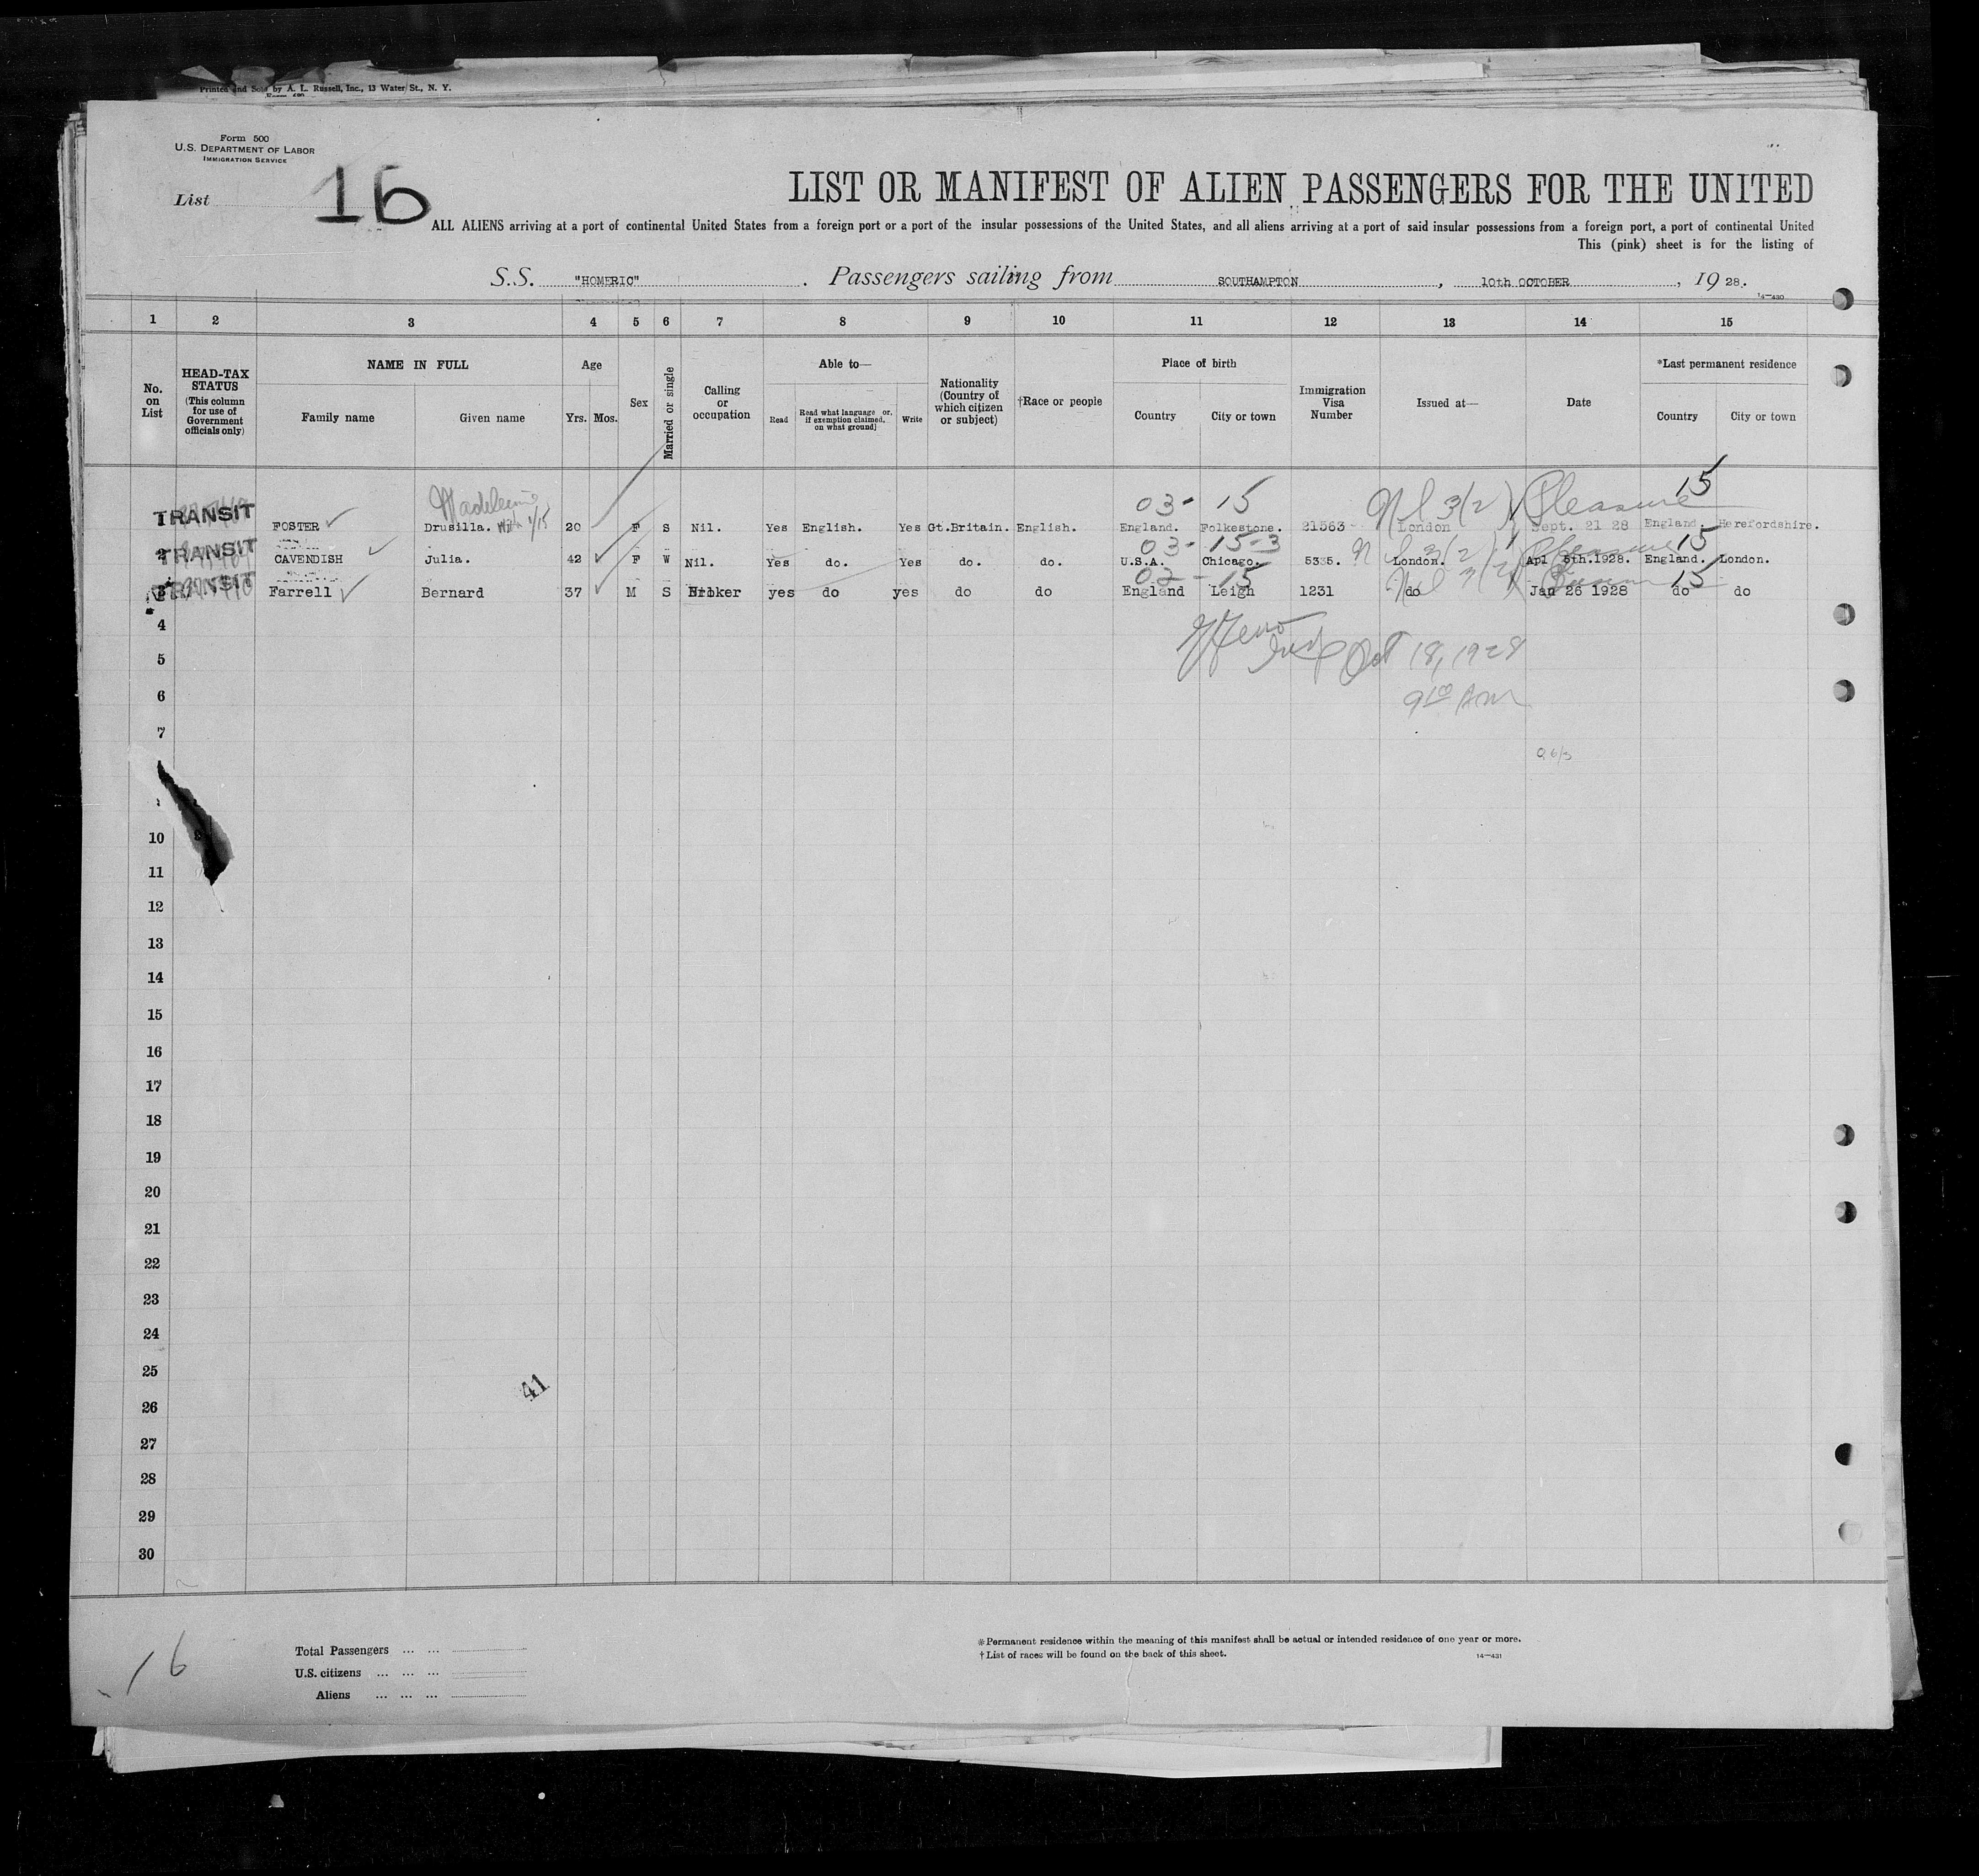 Printed and Sold by A. L. Russell, Inc., 13 Water St., N. Y.
Form 500
U.S. DEPARTMENT OF LABOR
IMMIGRATION SERVICE
List 16
LIST OR MANIFEST OF ALIEN PASSENGERS FOR THE UNITED
ALL ALIENS arriving at a port of continental United States from a foreign port or a part of the insular possessions of the United States, and all aliens arriving at a port of said insular possessions from a foreign port, a part of continental United
This (pink) sheet is for the listing of
S.S. "HOMERIC" . Passengers sailing from SOUTHAMPTON , 10th OCTOBER , 19 28.
14—430
1 2 3 4 5 6 7 8 9 10 11 12 13 14 15
No. on List
HEAD-TAX STATUS (This column for use of Government officials only)
NAME IN FULL
Family name
Given name
Age
Yrs. Mos.
Sex
Married or single
Calling or occupation
Able to—
Read
Read what language or, if exemption claimed, on what ground]
Write
Nationality (Country of which citizen or subject)
†Race or people
Place of birth
Country
City or town
Immigration Visa Number
Issued at—
Date
*Last permanent residence
Country
City or town
Madeleine 03- 15 3(2) Pleasure 15
TRANSIT FOSTER Drusilla. 20 F S Nil. Yes English. Yes Gt.Britain. English. England. Folkestone. 21563 London Sept. 21 28 England. Herefordshire.
03- 15-3 3(2) Pleasure 15
TRANSIT CAVENDISH Julia. 42 F W Nil. Yes do. Yes do. do. U.S.A. Chicago. 5335. London. Apl 5th.1928. England. London.
02-15 3(2) 15
TRANSIT Farrell Bernard 37 M S Broker yes do yes do do England Leigh 1231 do Jan 26 1928 do do
4
5
Oct 18, 1928
6
9 10 AM
7
10
11
12
13
14
15
16
17
18
19
20
21
22
23
24
25
41
26
27
28
29
30
16
Total Passengers ... ...
U.S. citizens ... ... ...
Aliens ... ... ...
*Permanent residence within the meaning of this manifest shall be actual or intended residence of one year or more.
†List of races will be found on the back of this sheet.
14—431